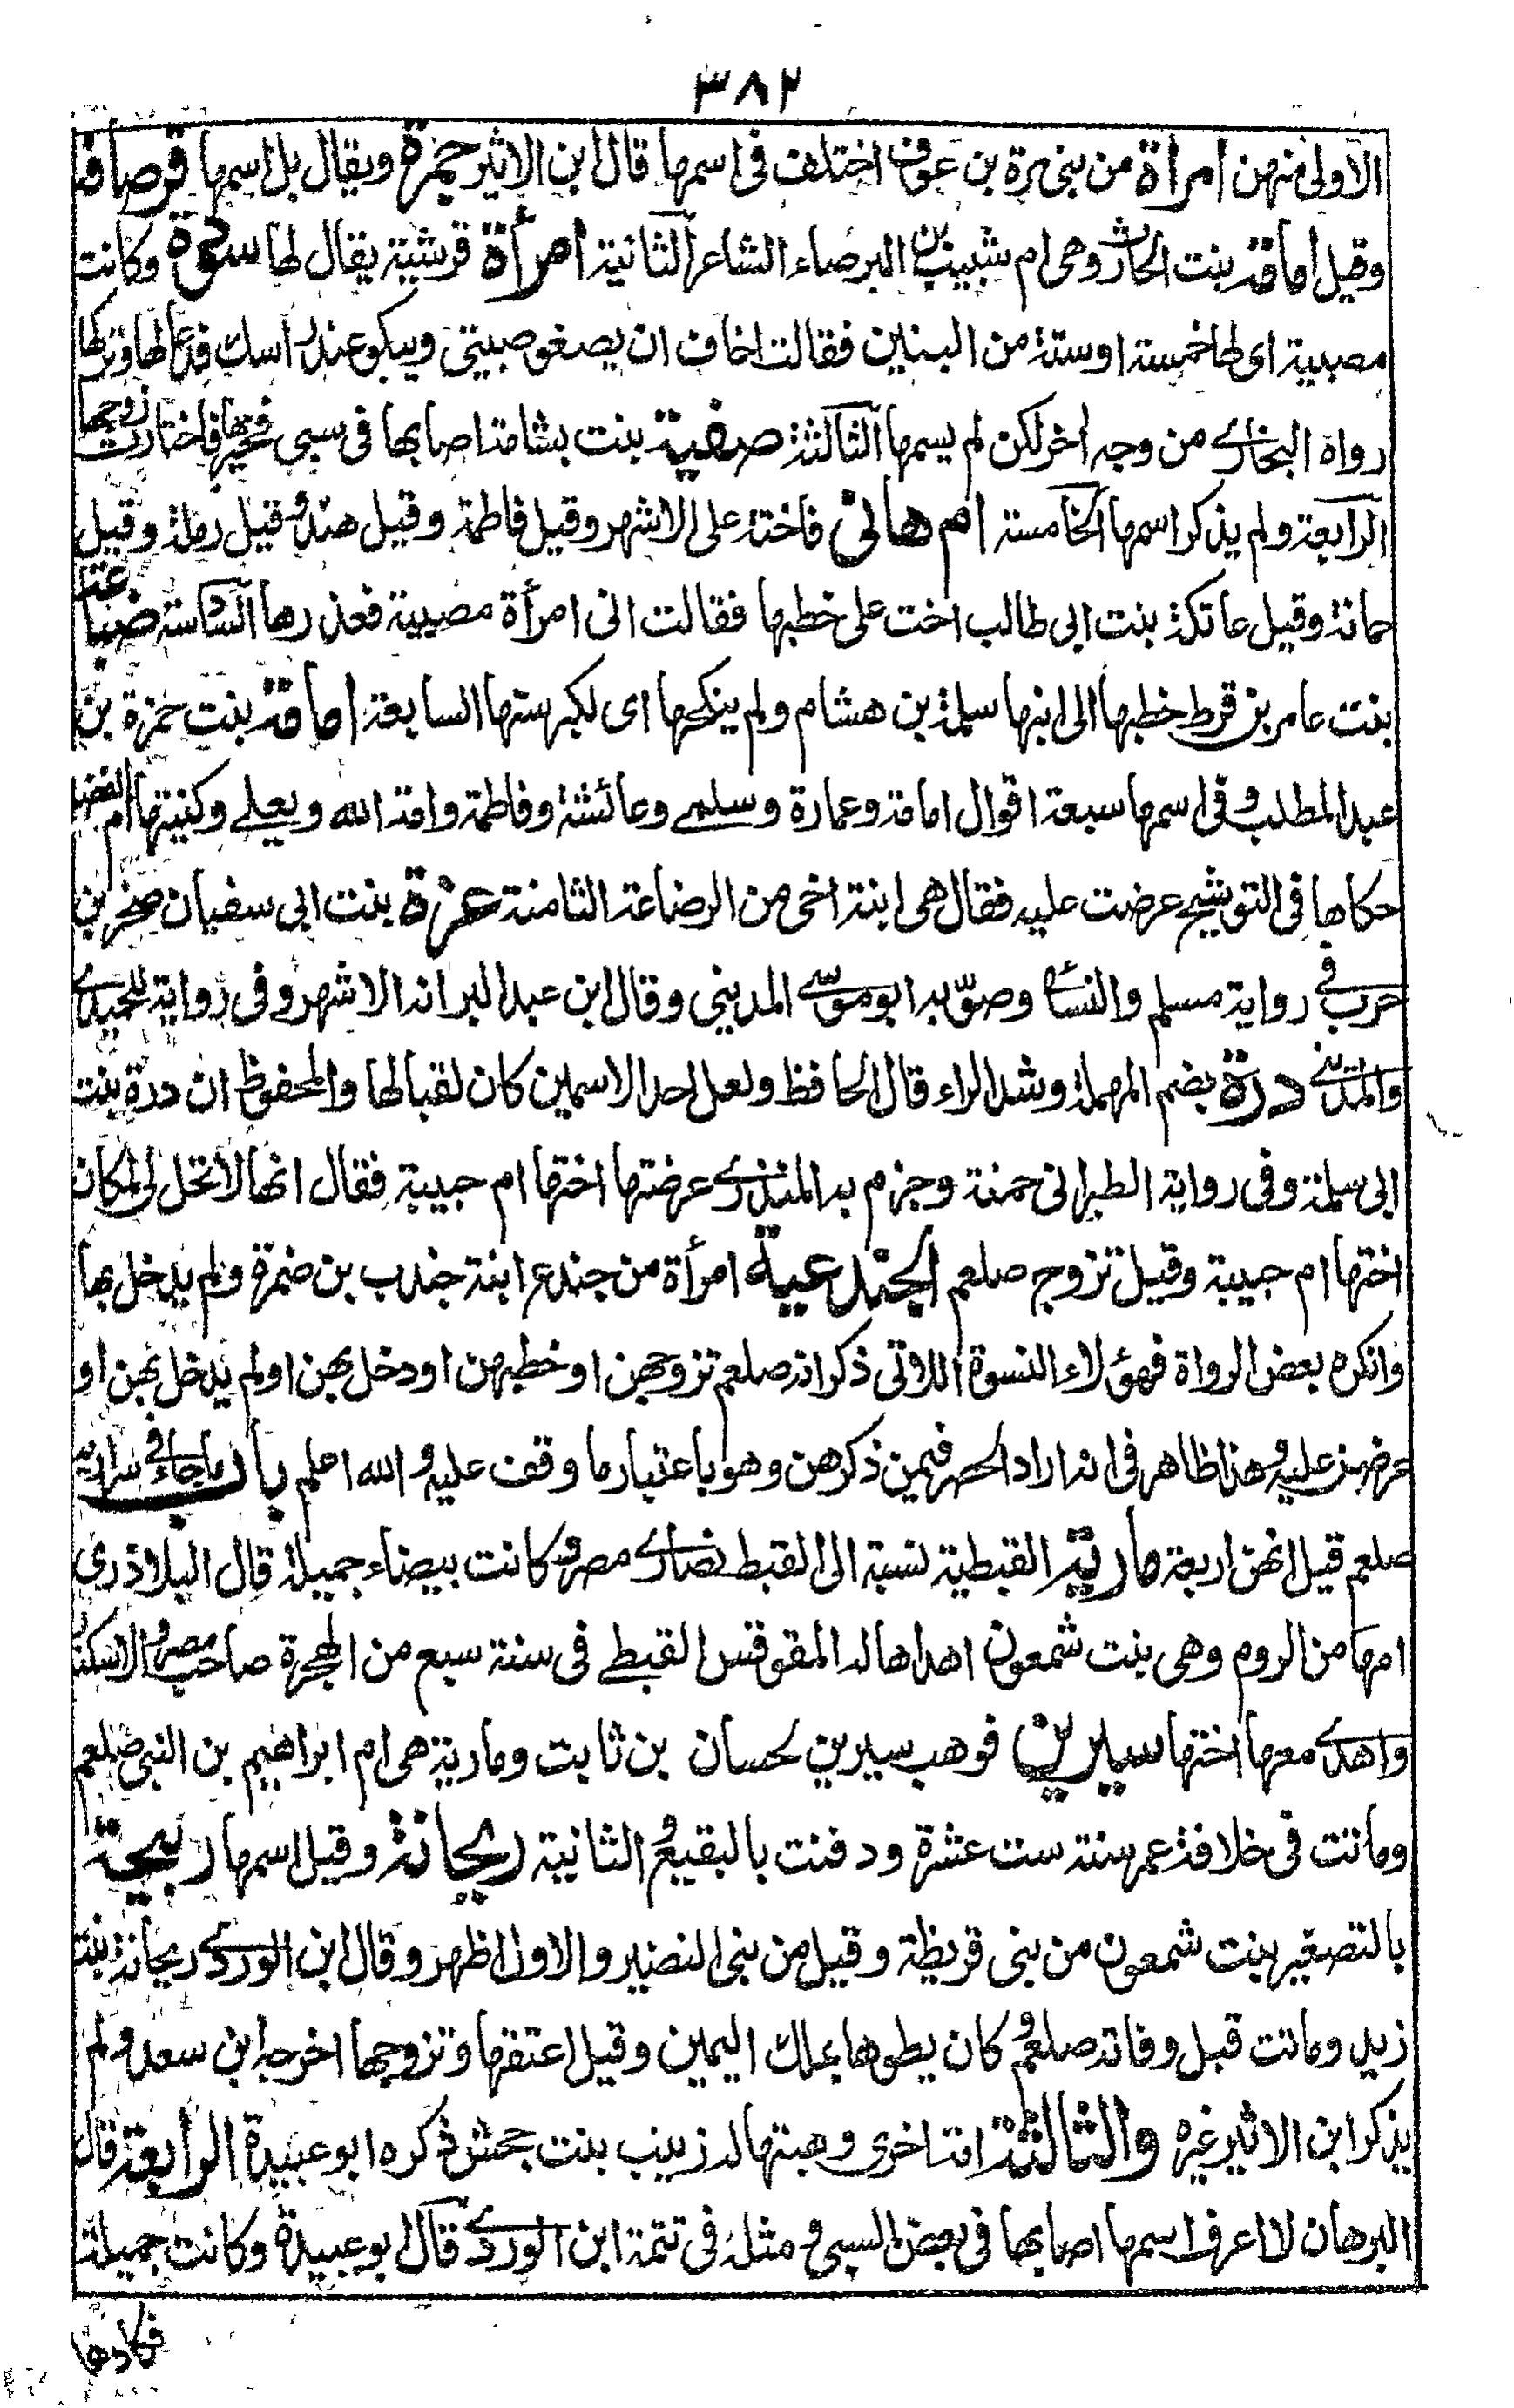 ٣٨٢
الاولى منهن امرأة من بنى مرة بن عوف اختلف فى اسمها قال ابن الاثير جمرة ويقال بل اسمها قرصافة
وقيل امامة بنت الحارث وهى ام شبيب بن البرصاء الشاعر الثانية امرأة قرشية يقال لها سودة وكانت
مصبية اى لها خمسة او ستة من البنين فقالت اخاف ان يضغو صبيتى ويبكو عند رأسك فدعا لها وتركها
رواه البخارى من وجه اخر لكن لم يسمها الثالثة صفية بنت بشامة اصابها فى سبى فخيرها فاختارت زوجها
الرابعة ولم يذكر اسمها الخامسة ام هانئ فاختة على الاشهر وقيل فاطمة وقيل هند وقيل رملة وقيل
حمانة وقيل عاتكة بنت ابى طالب اخت على خطبها فقالت انى امرأة مصبية فعذرها السادسة ضباعة
بنت عامر بن قرط خطبها الى ابنها سلمة بن هشام ولم ينكحها اى لكبر سنها السابعة امامة بنت حمزة بن
عبد المطلب وفى اسمها سبعة اقوال امامة وعمارة وسلمى وعائشة وفاطمة وامة الله ويعلى وكنيتها ام الفضل
حكاها فى التوشيح عرضت عليه فقال هى ابنة اخى من الرضاعة الثامنة عزة بنت ابى سفيان صخر بن
حرب فى رواية مسلم والنسائى وصوّبه ابو موسى المدينى وقال ابن عبد البر انه الاشهر وفى رواية للحميدى
والمدنى درة بضم المهملة وشد الراء قال الحافظ ولعل احد الاسمين كان لقبا لها والمحفوظ ان درة بنت
ابى سلمة وفى رواية الطبرانى حمنة وجزم به المنذرى عرضتها اختها ام حبيبة فقال انها لا تحل لى لمكان
اختها ام حبيبة وقيل تزوج صلعم الجندعية امرأة من جندع ابنة جندب بن ضمرة ولم يدخل بها
وانكره بعض الرواة فهؤلاء النسوة اللاتى ذكر انه صلعم تزوجهن او خطبهن او دخل بهن او لم يدخل بهن او
عرضن عليه وهذا ظاهر فى انه اراد الحصر فيمن ذكرهن وهو باعتبار ما وقف عليه والله اعلم باب ما جاء فى سراريه
صلعم قيل انهن اربعة مارية القبطية نسبة الى القبط نصارى مصر وكانت بيضاء جميلة قال البلاذرى
امها من الروم وهى بنت شمعون اهداها له المقوقس القبطى فى سنة سبع من الهجرة صاحب مصر والاسكندرية
واهدى معها اختها سيرين فوهب سيرين لحسان بن ثابت ومارية هى ام ابراهيم بن النبى صلعم
وماتت فى خلافة عمر سنة ست عشرة ودفنت بالبقيع والثانية ريحانة وقيل اسمها ربيحة
بالتصغير بنت شمعون من بنى قريظة وقيل من بنى النضير والاول اظهر وقال ابن الوردى ريحانة بنت
زيد وماتت قبل وفاته صلعم وكان يطوها بملك اليمين وقيل اعتقها وتزوجها اخرجه ابن سعد ولم
يذكر ابن الاثير غيره والثالثة امة اخرى وهبتها له زينب بنت جحش ذكره ابو عبيدة الرابعة قال
البرهان لا اعرف اسمها اصابها فى بعض السبى ومثله فى تتمة ابن الوردى قال ابو عبيدة وكانت جميلة
فكادها